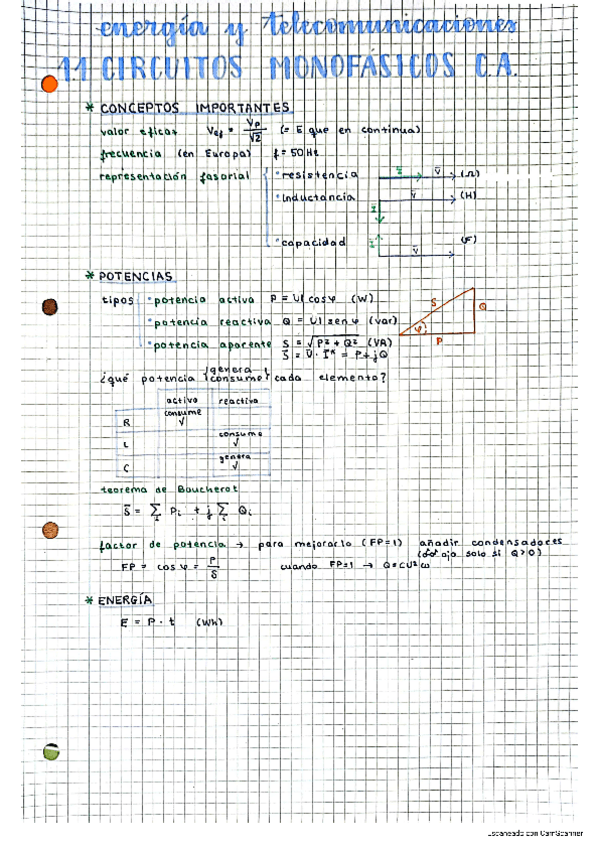 energía y telecomunicaciones
1.1 CIRCUITOS MONOFÁSICOS C.A.
* CONCEPTOS IMPORTANTES
valor eficaz Vef = Vp/√2 (= E que en continua)
frecuencia (en Europa) f = 50 Hz
representación fasorial
· resistencia I V (Ω)
· inductancia I V (H)
· capacidad I V (F)
* POTENCIAS
tipos · potencia activa P = UI cos φ (W)
· potencia reactiva Q = UI sen φ (var)
· potencia aparente S = √P² + Q² (VA)
S̄ = Ū · I* = P + jQ
S Q φ P
¿qué potencia genera / consume cada elemento?
activa reactiva
R consume √
L consume √
C genera √
teorema de Boucherot
S̄ = Σ Pi + j Σ Qi
factor de potencia → para mejorarlo (FP=1) añadir condensadores
(ojo solo si Q>0)
FP = cos φ = P/S cuando FP=1 → Q = CU²ω
* ENERGÍA
E = P · t (Wh)
Escaneado con CamScanner